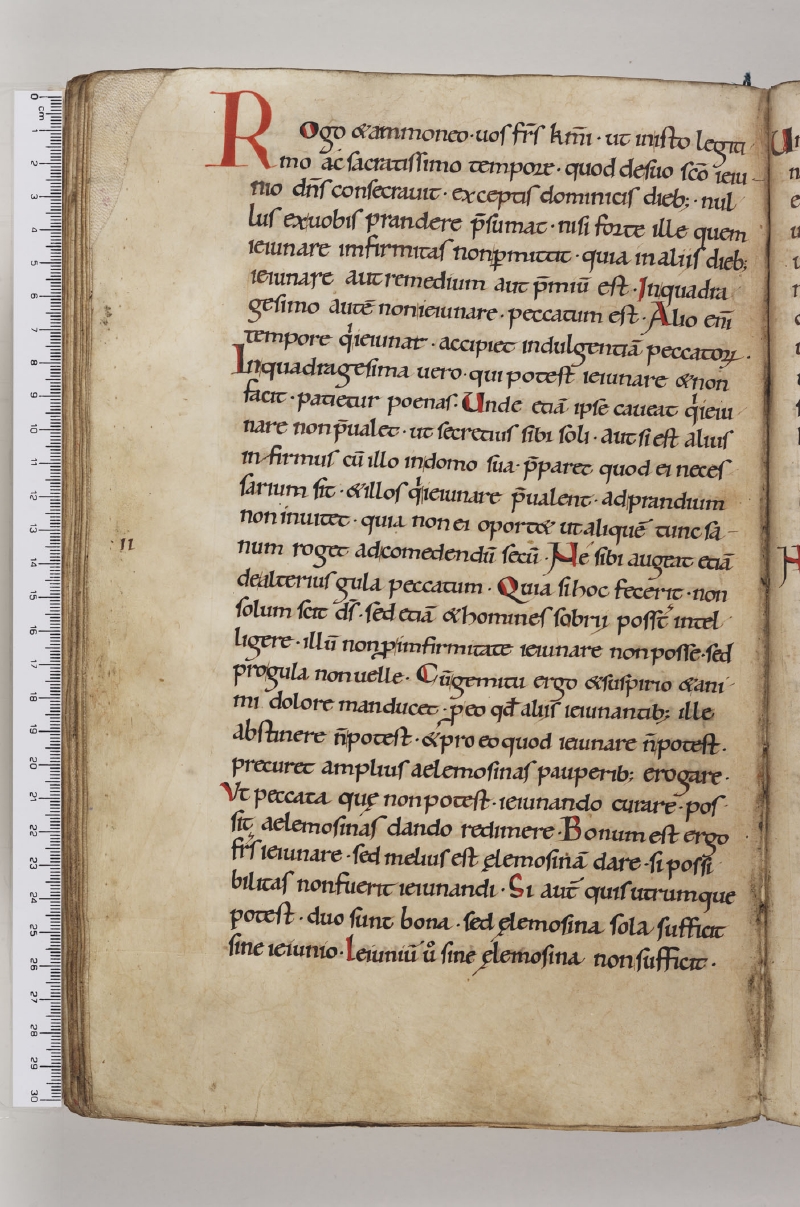 Rogo &ammoneo · uos fr̄s km̄i · ut inisto legiti
mo ac sacratissimo tempore · quod desuo sc̄o ieiu
nio dn̄s consecrauit · exceptis dominicis dieb; · nul
lus exuobis prandere p̄sumat · nisi forte ille quem
ieiunare imfirmitas nonꝑmittit · quia inaliis dieb;
ieiunare aut remedium aut p̄miū est · Inquadra
gesimo autē nonieiunare · peccatum est · Alio eni̅
tempore qͥieiunat · accipiet indulgentiā peccatoꝝ ·
Inquadragesima uero · qui potest ieiunare &non
facit · patietur poenas · Unde etiā ipse caueat qͥieiu
nare non p̄ualet · ut secretius sibi soli · aut si est alius
infirmus cū illo indomo sua · p̄paret quod ei neces
sarium sit · &illos qͥieiunare p̄ualent · adprandium
non inuitet · quia non ei oport& utaliquē tunc sa
II
num roget adcomedendū secū · Ne sibi augeat etiā
dealterius gula peccatum · Quia si hoc fecerit · non
solum scit ds̄ · sed etiā &homines sobrii possc̄ intel
ligere · illū nonꝑimfirmitate ieiunare non posse · sed
progula non uelle · Cūgemitu ergo &suspirio &ani
mi dolore manducet · ꝑeo qđ aliis ieiunantib; ille
abstinere n̄potest · &pro eo quod ieiunare n̄potest ·
precuret amplius aelemosinas pauperib; erogare ·
Vt peccata quę non potest · ieiunando curare · pos
sit aelemosinas dando redimere · Bonum est ergo
fr̄s ieiunare · sed melius est ęlemosinā dare · si possi
bilitas nonfuerit ieiunandi · Si aut̄ quis utrumque
potest · duo sunt bona · sed ęlemosina sola sufficit
sine ieiunio · Ieiuniū ůͦ sine ęlemosina non sufficit ·